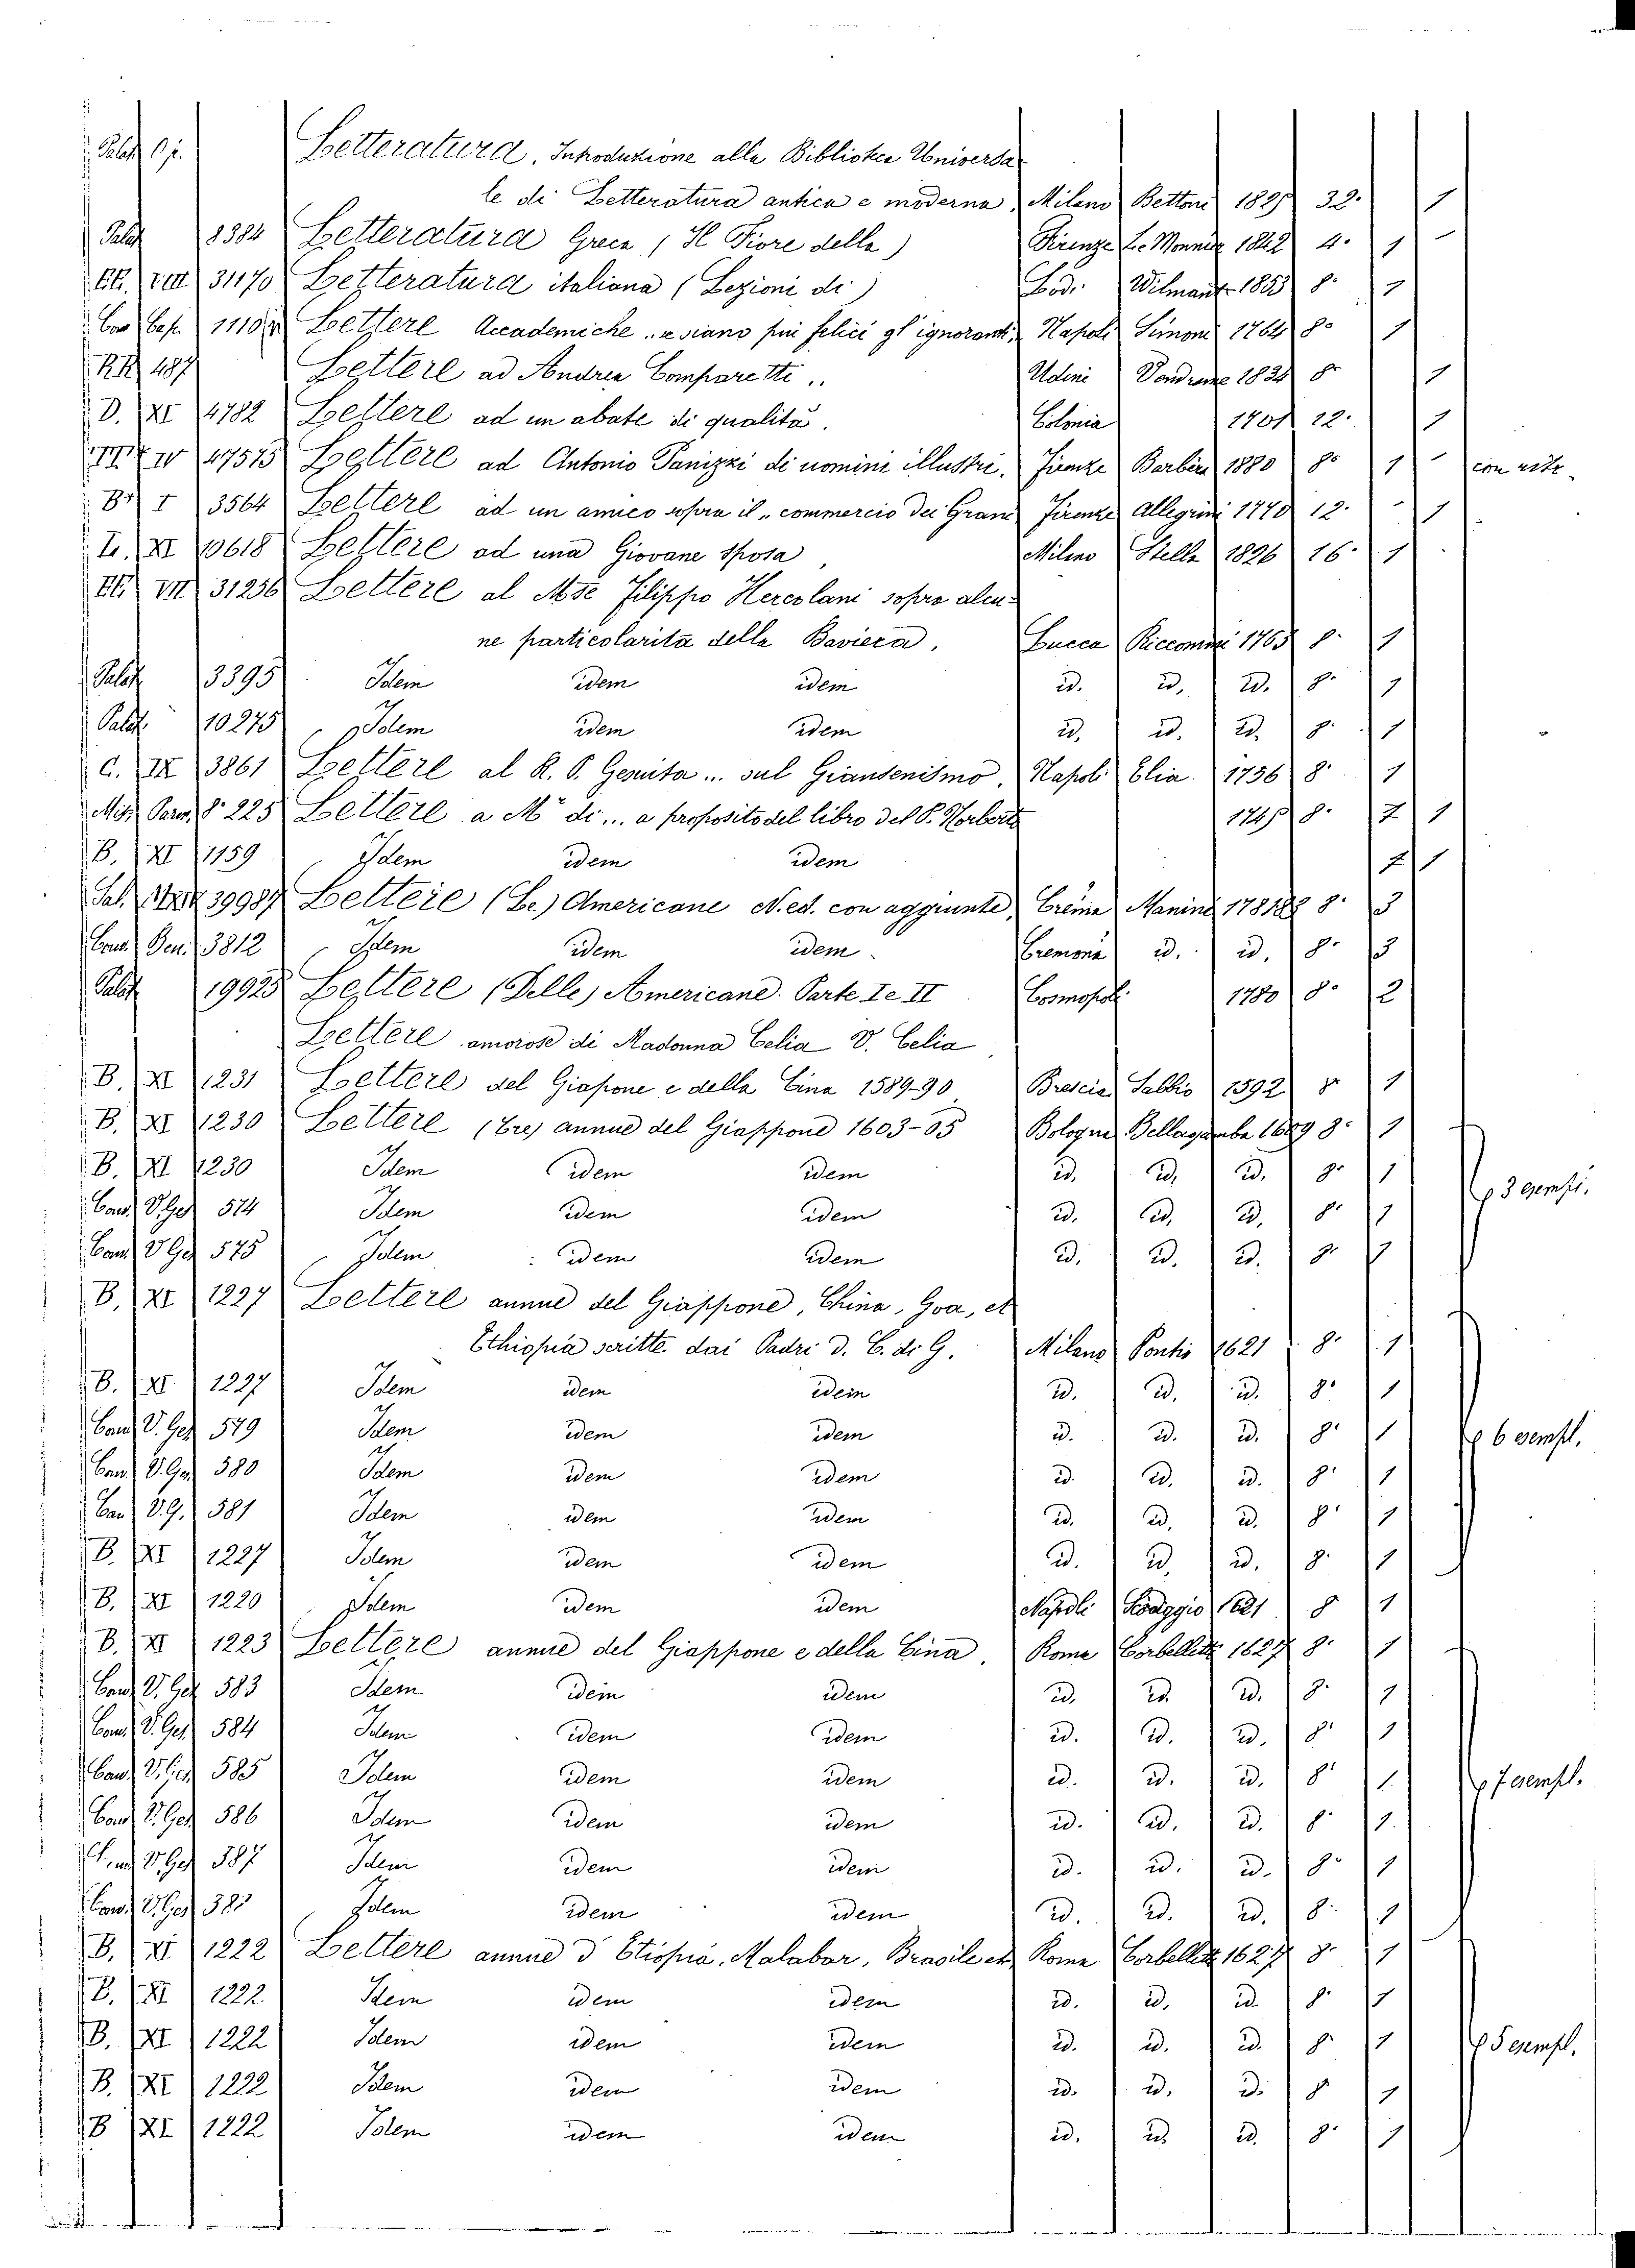 Letteratura. Introduzione alla Biblioteca Universa
le di Letteratura antica e moderna, Milano Bettoni 32. 1
Palat 8384 Letteratura Greca (Il Fiore della) Firenze Le Monnier 1842 4. 1
VIII 31170 Letteratura italiana (Lezioni di) Lodi Wilmant 8. 1
Lettere Accademiche "se siano più felici gl'ignoranti, Napoli Simone 1764 8. 1
487 Lettere ad Andrea Comparetti.. Udine 8. 1
D. XI 4782 Lettere ad un abate di qualità. Colonia 1701 12. 1
IV 47515 Lettere ad Antonio Panizzi di uomini illustri. Firenze Barbèra 1880 8. 1 con ritr.
I 3564 Lettere ad un amico sopra il "commercio dei Grani Firenze Allegrini 1770 12. 1
XI 10618 Lettere ad una Giovane sposa, Milano Stella 1826 16. 1
VII 31256 Lettere al Mse Filippo Hercolani sopra alcu-
ne particolarità della Baviera. Lucca Riccomini 1763 8. 1
Palat 3395 Idem idem idem id. id. id. 8. 1
Palat. 10275 Idem idem idem id. id. id. 8. 1
C. IX 3861 Lettere al R. P. Gesuita... sul Giansenismo, Napoli Elia 1756 8. 1
Misc. Parm. 8° 225 Lettere a Mr di... a proposito del libro del P. Norberto 8. 1
B. XI 1159 Idem idem idem 1
39987 Lettere (Le) Americane N. ed. con aggiunte, Crema Manini 8. 3
3812 Idem idem idem. Cremona id. id. 8. 3
Palat 19925 Lettere (Delle) Americane. Parte I e II Cosmopoli 1780 8. 2
Lettere amorose di Madonna Celia V. Celia
B. XI 1231 Lettere del Giapone e della Cina 1589-90, Brescia Sabbio 1592 8. 1
B. XI 1230 Lettere (Tre) annue del Giappone 1603-05 Bologna Bellagamba 1609 8. 1
B. XI 1230 Idem idem idem id. id. id. 8. 1 3 esempl.
Cand V. Ges 574 Idem idem idem id. id. id. 8. 1
Cand V. Ges 575 Idem idem idem id. id. id. 8. 1
B. XI 1227 Lettere annue del Giappone, China, Goa, et
Ethiopia scritte dai Padri d. C. di G. Milano Pontio 1621 8. 1
B. XI. 1227 Idem idem idem id. id. id. 8. 1
Cand V. Ges 579 Idem idem idem id. id. id. 8. 1 6 esempl.
Cand V. Ges 580 Idem idem idem id. id. id. 8. 1
Cand V. G. 581 Idem idem idem id. id. id. 8. 1
B. XI 1227 Idem idem idem id. id. id. 8. 1
B. XI 1220 Idem idem idem Napoli 1621 8 1
B. XI 1223 Lettere annue del Giappone e della Cina. Roma Corbelletti 1627 8. 1
Cand V. Ges 583 Idem idem idem id. id. id. 8. 1
Cand V. Ges 584 Idem idem idem id. id. id. 8. 1
Cand V. Ges 585 Idem idem idem id. id. id. 8. 1 7 esempl.
Cand V. Ges 586 Idem idem idem id. id. id. 8. 1
Cand V. Ges 587 Idem idem idem id. id. id. 8. 1
Cand V. Ges Idem idem idem id. id. id. 8. 1
B. XI 1222 Lettere annue d'Etiopia, Malabar, Brasile et Roma Corbelletti 1627 8. 1
B. XI 1222 Idem idem idem id. id. id. 8. 1
B. XI. 1222 Idem idem idem id. id. id. 8. 1 5 esempl.
B. XI 1222 Idem idem idem id. id. id. 8 1
B XI 1222 Idem idem idem id. id. id. 8. 1